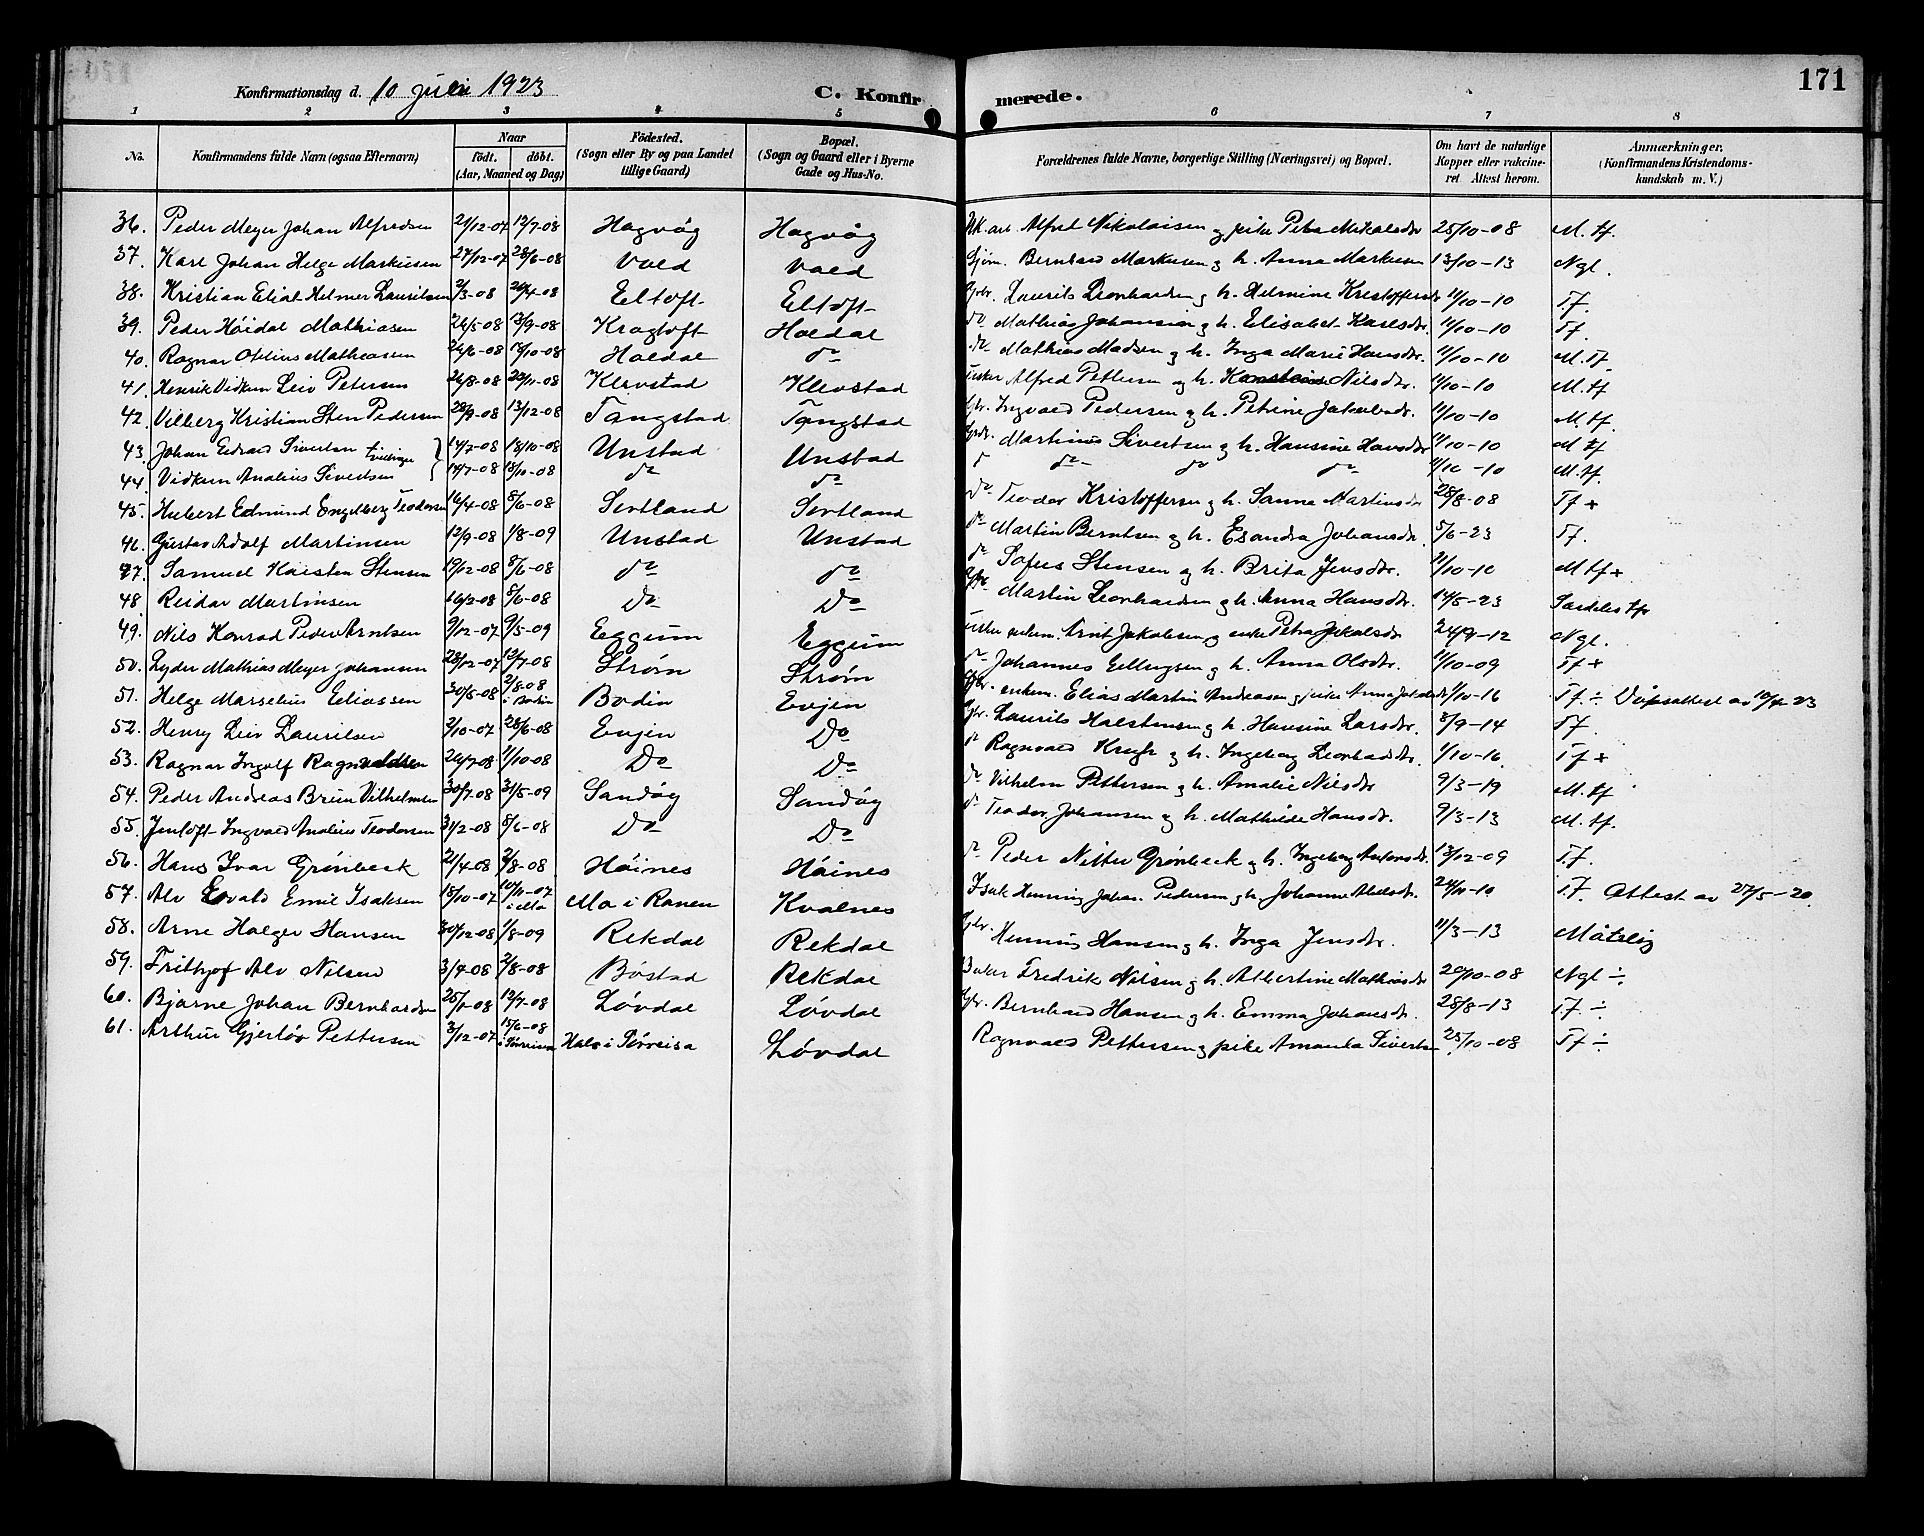 171
Konfirmationsdag d. 10 juli 1923 C. Konfirmerede.
1 2 3 4 5 6 7 8
No. Konfirmandens fulde Navn (ogsaa Efternavn) Naar födt. döbt. (Aar, Maaned og Dag) Födested. (Sogn eller By og paa Landet tillige Gaard) Bopæl. (Sogn og Gaard eller i Byerne Gade og Hus-No. Forældrenes fulde Navne, borgerlige Stilling (Næringsvei) og Bopæl. Om havt de naturlige Kopper eller vaccineret Attest herom. Anmærkninger. (Konfirmandens Kristendomskundskab m. V.)
36. Peder Meyer Johan Alfredsen 21/12-07 12/7-08 Hagvåg Hagvåg Alfred Nikolaisen og pike Petra Nikolaisdtr 25/10-08 M. tf.
37. Karl Johan Helge Markusen 27/12-07 28/6-08 Vold Vold Bernhard Markusen og h. Anna Markusen 13/10-13 Ngl.
38. Kristian Eliot Helmer Lauritsen 2/3-08 26/4-08 Eltoft Eltoft Gbr. Laurits Leonhardsen og h. Helmine Kristoffersdr 11/10-10 Tf.
39. Peder Höidal Mathiasen 26/5-08 13/9-08 Kragtoft Holdal do Mathias Johansen og h. Elisabet Karlsdtr. 11/10-10 Tf.
40. Ragnar Otelius Mathiassen 26/6-08 18/10-08 Holdal do do Mathias Madsen og h. Inga Marie Hansdtr. 11/10-10 M. Tf.
41. Henrik Vidkun Leiv Petersen 26/8-08 22/11-08 Klevstad Klevstad Fisker Alfred Pettersen og h. Konstanse Nilsdtr. 11/10-10 M. tf
42. Vilberg Kristian Sten Pedersen 28/9-08 13/12-08 Tangstad Tangstad Gbr. Ingvald Pedersen og h. Petrine Jakobsdr. 11/10-10 M. tf.
43. Johan Edvard Sivertsen tvillinger 14/7-08 18/10-08 Unstad Unstad Gbr. Martinus Sivertsen og h. Hansine Hansdtr 11/10-10 M tf
44. Vidkun Analius Sivertsen 14/7-08 18/10-08 do do do do do do 11/10-10 M. tf.
45. Hubert Edmund Engelberg Teodorsen 16/4-08 8/6-08 Sortland Sortland do Teodor Kristoffersen og h. Sanna Martinsdr 28/8-08 Tf +
46. Gustav Adolf Martinsen 12/9-08 1/8-09 Unstad Unstad do Martin Berntsen og h. Esandra Johansdr. 5/6-23 Tf.
47. Samuel Karsten Stensen 19/2-08 8/6-08 do do do Sofus Stensen og h. Brita Jensdtr. 11/10-10 M tf +
48. Reidar Martinsen 16/2-08 8/6-08 Do Do Martin Leonhardsen og h. Anna Hansdtr. 14/5-23 Særdeles tfr
49. Nils Konrad Peder Arntsen 9/12-07 9/5-09 Eggum Eggum Fisker enkem. Arnt Jakobsen og enke Petra Jakobsdtr 24/9-12 Ngl.
50. Lyder Mathias Meyer Johansen 28/12-07 12/7-08 Ström Ström do Johannes Ellingsen og h. Anna Olsdtr. 11/10-09 Tf +
51. Helge Marselius Eliassen 30/5-08 2/8-08 i Bodin Bodin Evjen Gbr. enkem. Elias Martin Andreasen og pike Anna Jakobsdr 1/10-16 Tf ÷ Dåpsattest av 10/4 23
52. Henry Leiv Lauritsen 2/10-07 28/6-08 Evjen Do Gbr. Laurits Halstensen og h. Hansine Larsdtr. 8/9-14 Tf.
53. Ragnar Ingolf Ragnvaldsen 26/7-08 1/10-08 Do Do do Ragnvald Krogh og h. Ingeborg Leonhardsdr. 1/10-16 Tf +
54. Peder Andreas Brun Vilhelmsen 30/7-08 31/5-09 Sandøy Sandøy do Vilhelm Pettersen og h. Amalie Nilsdtr 9/3-19 M. tf
55. Jentoft Ingvald Analius Teodorsen 3/2-08 8/6-08 Do Do do Teodor Johansen og h. Mathilde Hansdr. 9/3-13 M. tf.
56. Hans Ivar Grönbeck 21/4-08 2/8-08 Höines Höines do Peder Nitter Grönbeck og h. Ingeborg Antonsdr 13/12-09 Tf.
57. Alv Edvald Emil Isaksen 15/10-07 10/11-07 i Mo Mo i Ranen Kvalnes Isak Henning Johan Pedersen og h. Johanne Abelsdr. 24/11-10 Tf. Attest av 27/5-20.
58. Arne Holger Hansen 30/12-08 1/8-09 Rekdal Rekdal Gbr. Henning Hansen og h. Inga Jensdtr. 11/3-13 Måtelig
59. Frithjof Alv Nilsen 3/4-08 2/8-08 Böstad Rekdal Baker Fredrik Nilsen og h. Albertine Mathiasdr 20/10-08 Ngl ÷
60. Bjarne Johan Bernhardsen 25/1-08 12/7-08 Lövdal Lövdal Gbr. Bernhard Hansen og h. Emma Johansdr. 28/8-13 Tf ÷
61. Arthur Gjertöv Pettersen 3/12-07 15/6-08 i Sörreisa Hals i Sörreisa Lövdal Ragnvald Pettersen og pike Amanda Sivertsen 25/10-08 Tf ÷